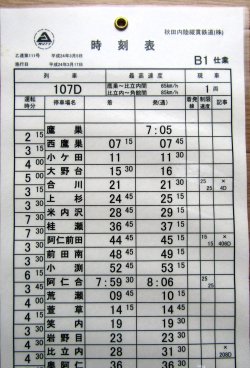 秋田内陸縦貫鉄道(株)
時刻表
乙運第111号 平成24年3月5日
施行日 平成24年3月17日
B1 仕業
列車 最高速度 現車
107D 鷹巣〜比立内間 65km/h 1両
比立内〜角館間 85km/h
運転時分 停車場名 着 発(通) 着発線 制限速度 記事
鷹巣 7:05
2 15 西鷹巣 07 15 07 45
3 15 小ヶ田 11 11 30
4 00 大野台 15 30 16
5 00 合川 21 21 30
3 15 上杉 24 45 25
3 45 米内沢 28 45 29
7 15 桂瀬 36 15 37
阿仁前田 44 45 45
前田南 48 45 49
小渕 52 45 53
阿仁合 7:59 30 8:06
荒瀬 09 45 10
萱草 14 14
笑内 19 19 30
岩野目 23 23 30
比立内 28 31
奥阿仁